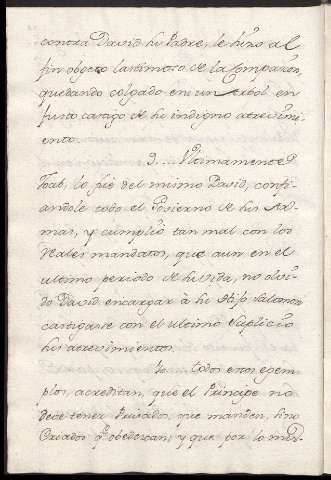 contra David su Padre, le hizo al
fin objeto lastimoso de la Compasion,
quedando colgado en un Arbol en
justo castigo de su indigno atrevimi-
ento.
9... Ultimamente
Joab, lo fue del mismo David, confi-
andole todo el Govierno de sus Ar-
mas, y cumplio tan mal con los
Reales mandatos, que aun en el
ultimo periodo de su vida, no olvi-
do David encargar à su Hijo Salomon
castigase con el ultimo suplicio
su atrevimiento.
10. todos estos egem-
plos, acreditan, que el Principe no
deve tener Privados, que manden, sino
Criados q.e obedezcan, y que por lo mis-